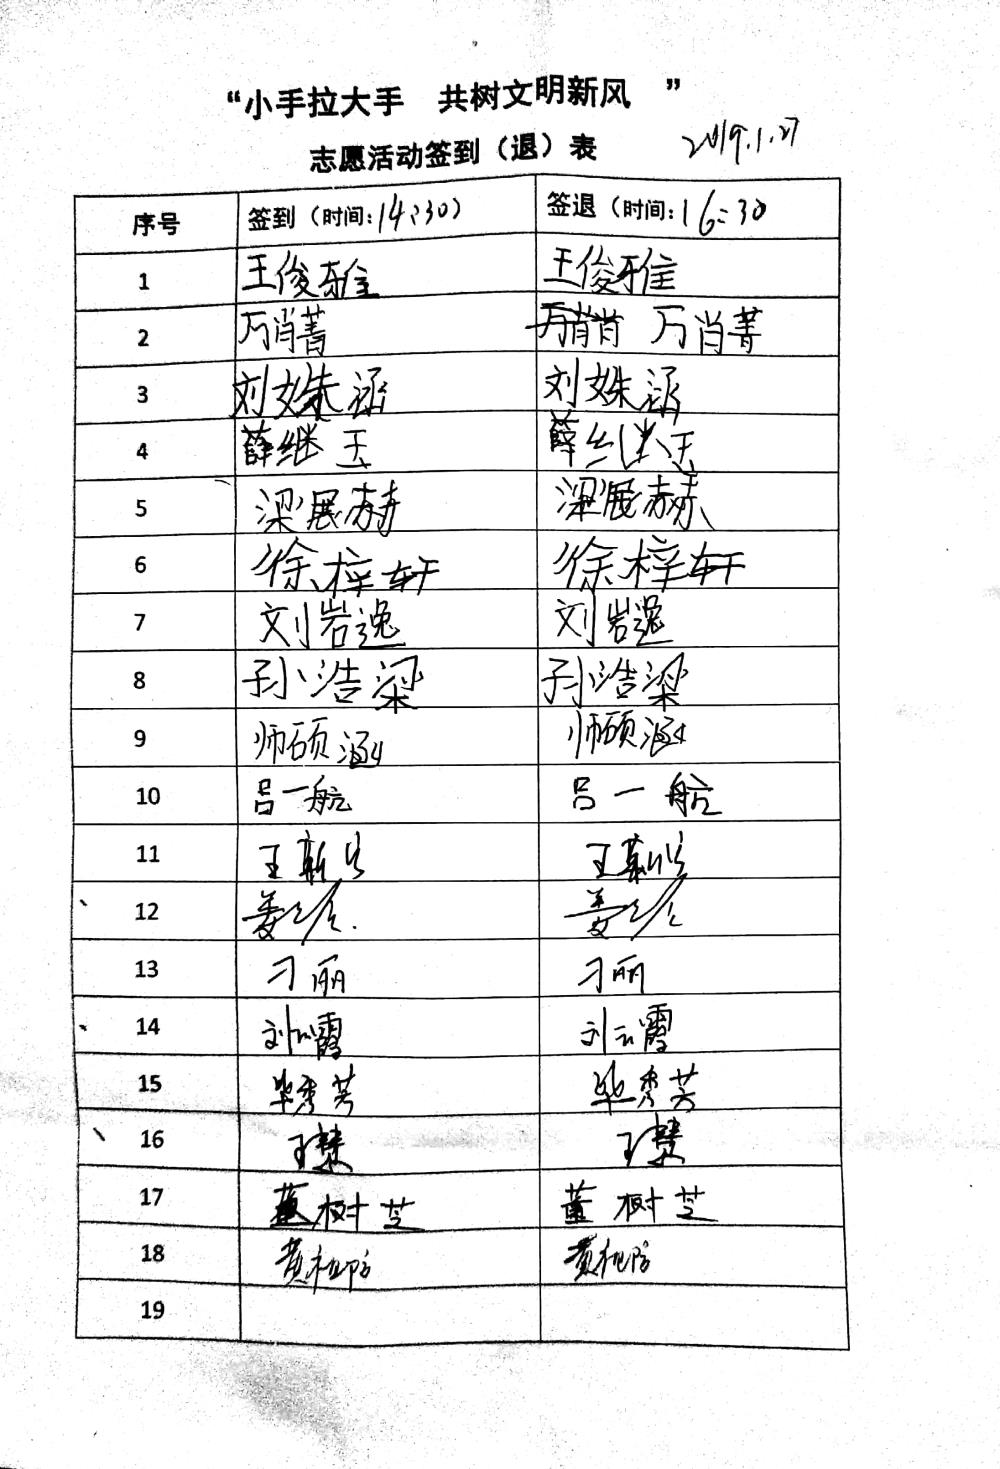 “小手拉大手 共树文明新风 ”
志愿活动签到（退）表 2019.1.27
序号 签到（时间:14:30） 签退（时间:16:30
1 王俊雅 王俊雅
2 万肖菁 万肖菁
3 刘姝涵 刘姝涵
4 薛继玉 薛继玉
5 梁展赫 梁展赫
6 徐梓轩 徐梓轩
7 刘岩逸 刘岩逸
8 孙浩梁 孙浩梁
9 师硕涵 师硕涵
10 吕一航 吕一航
11 王 王
12 姜 姜
13 刁丽 刁丽
14 刘云霞 刘云霞
15 毕秀芳 毕秀芳
16 王慧 王慧
17 董树芝 董树芝
18 黄 黄
19